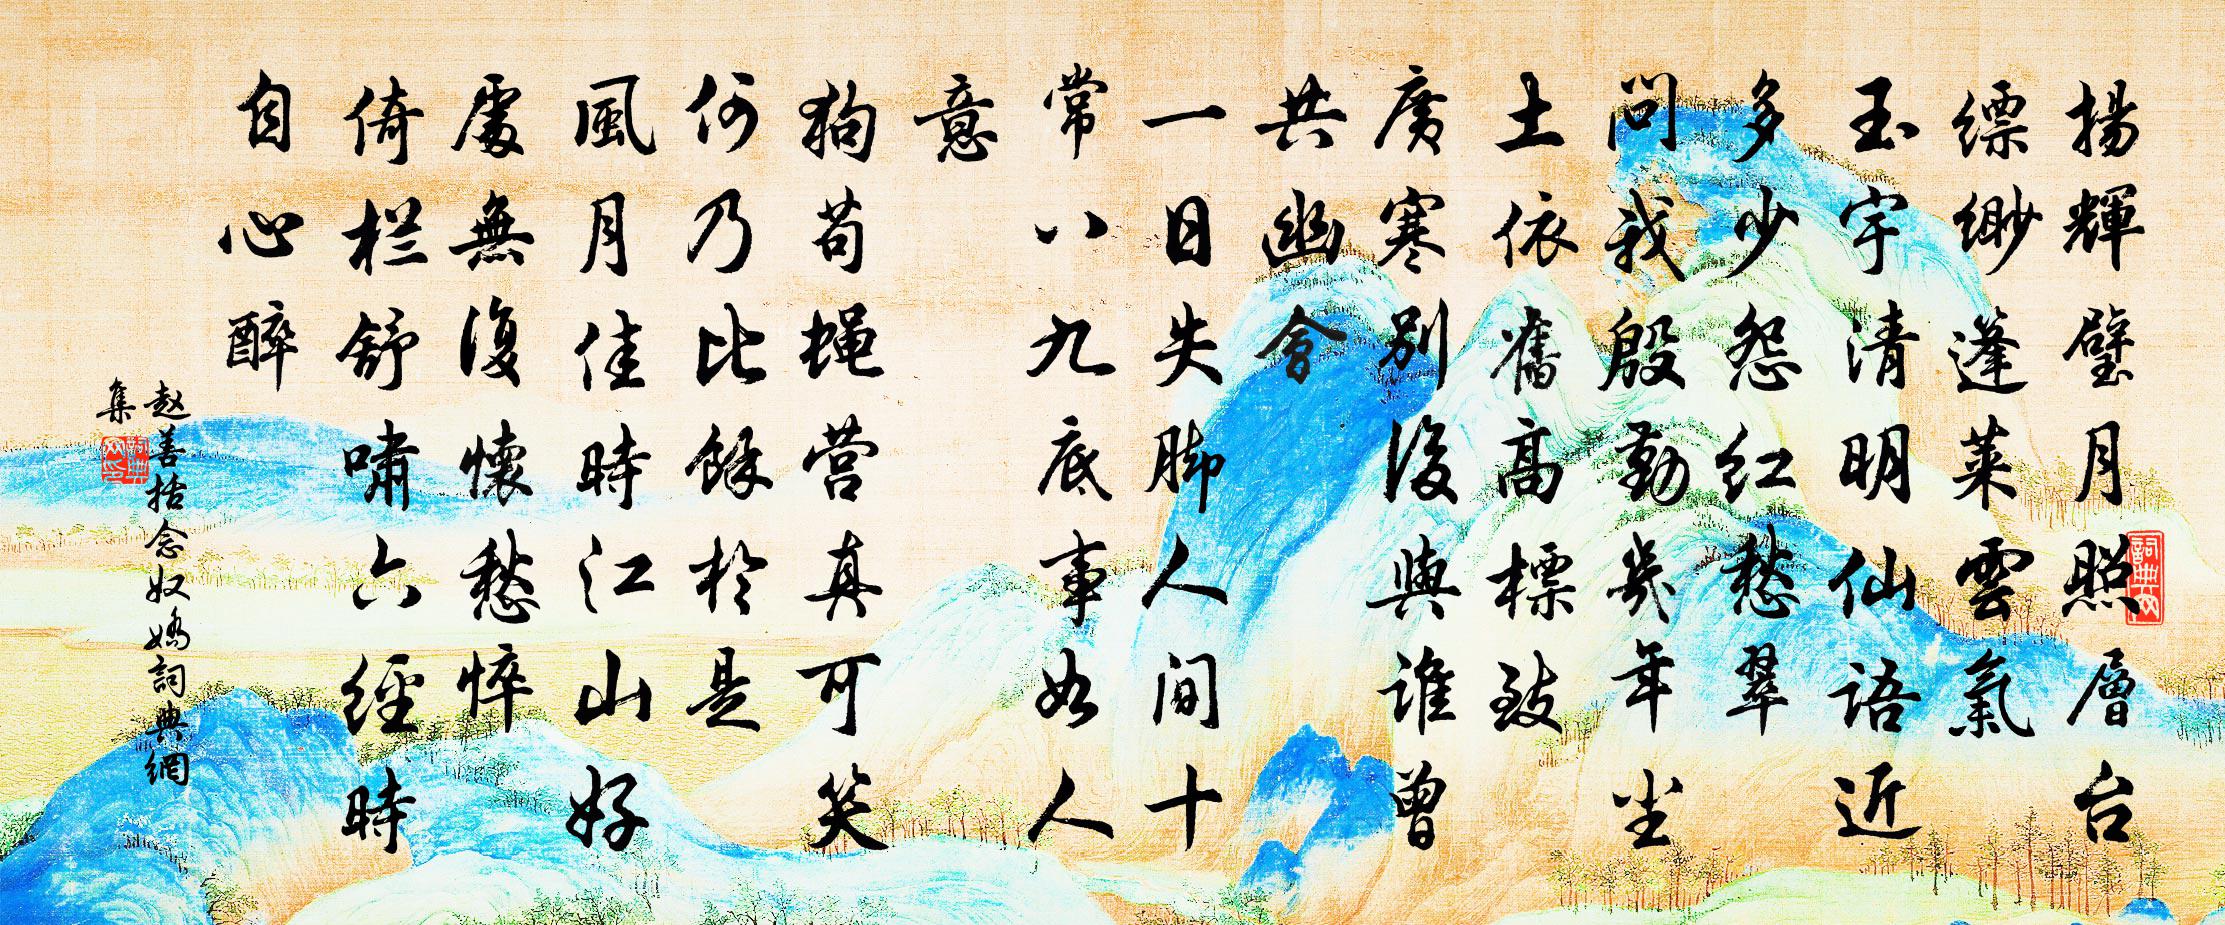 揚輝璧月照層台
缥缈蓬莱雲氣
玉宇清明仙語近
多少怨红愁翠
问我殷勤幾年尘
土依舊高標致
廣寒别後與誰曾
共幽會
一日失脚人间十
常八九底事如人
意
狗苟蝇营真可笑
何乃比餘於是
風月佳時江山好
處無復懷愁悴
倚栏舒嘯六經時
自心醉
赵善括念奴嬌詞典網
集
詞典網